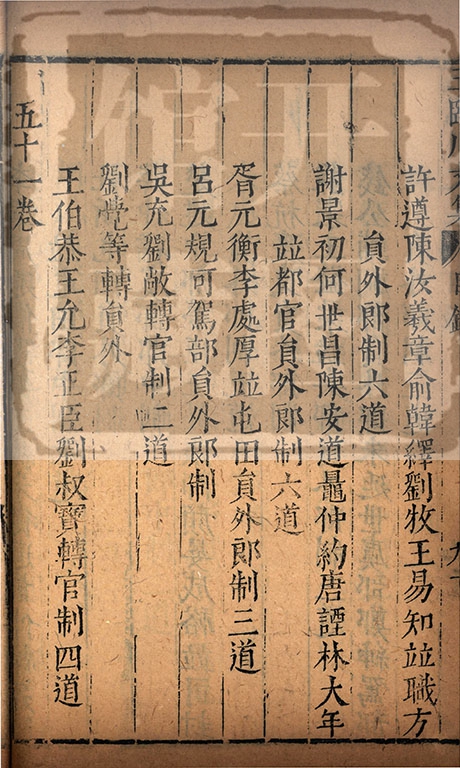 許遵陳汝羲章俞韓繹劉牧王易知竝職方
員外郎制六道
謝景初何世昌陳安道聶仲約唐諲林大年
竝都官員外郎制六道
胥元衡李處厚竝屯田員外郎制三道
呂元規可駕部員外郎制
吳充劉敞轉官制二道
劉覺等轉員外
王伯恭王允李正臣劉叔寶轉官制四道
五十一卷